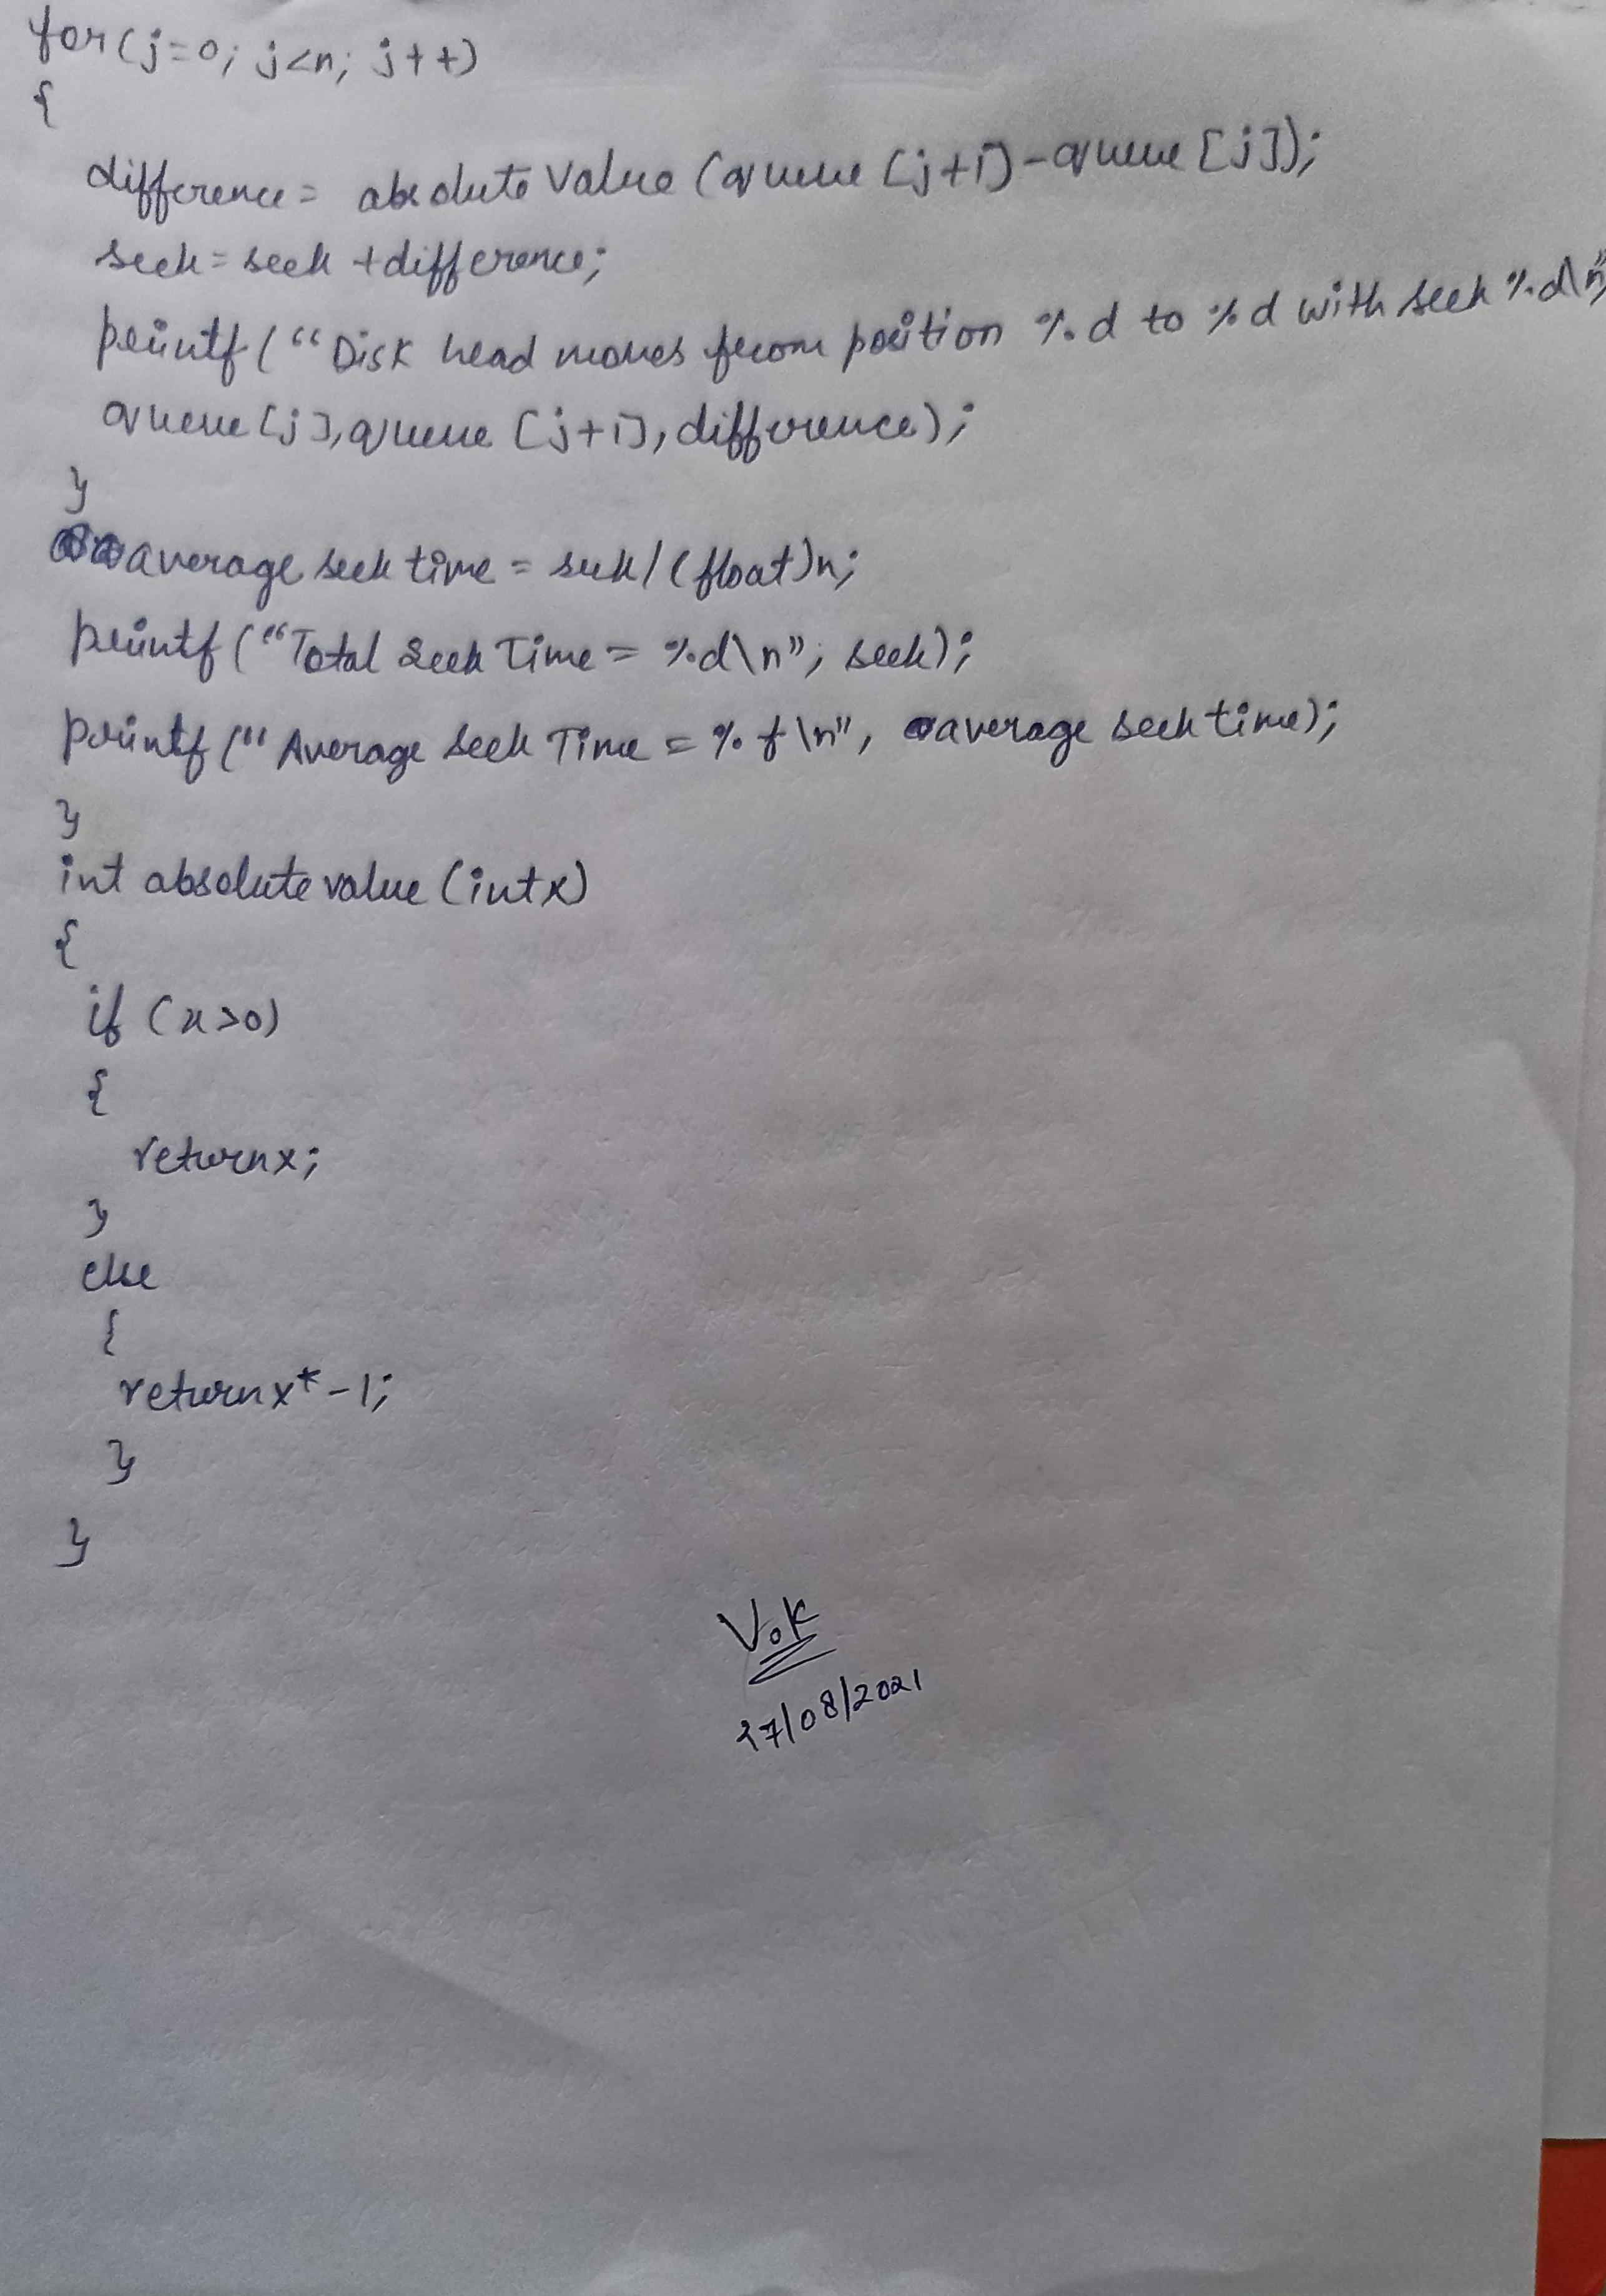 for(j=0; j<n; j++)
{
difference = absolute value (queue [j+1]-queue [j]);
seek = seek +difference;
printf (“Disk head moves from position %d to %d with seek %d\n”,
queue[j], queue [j+1], difference);
}
average seek time = seek/(float)n;
printf (“Total Seek Time = %d\n”, seek);
printf ("Average Seek Time = %f\n", average seek time);
}
int absolute value (int x)
{
if (x>0)
{
return x;
}
else
{
return x*-1;
}
}
V.K
17/08/2021